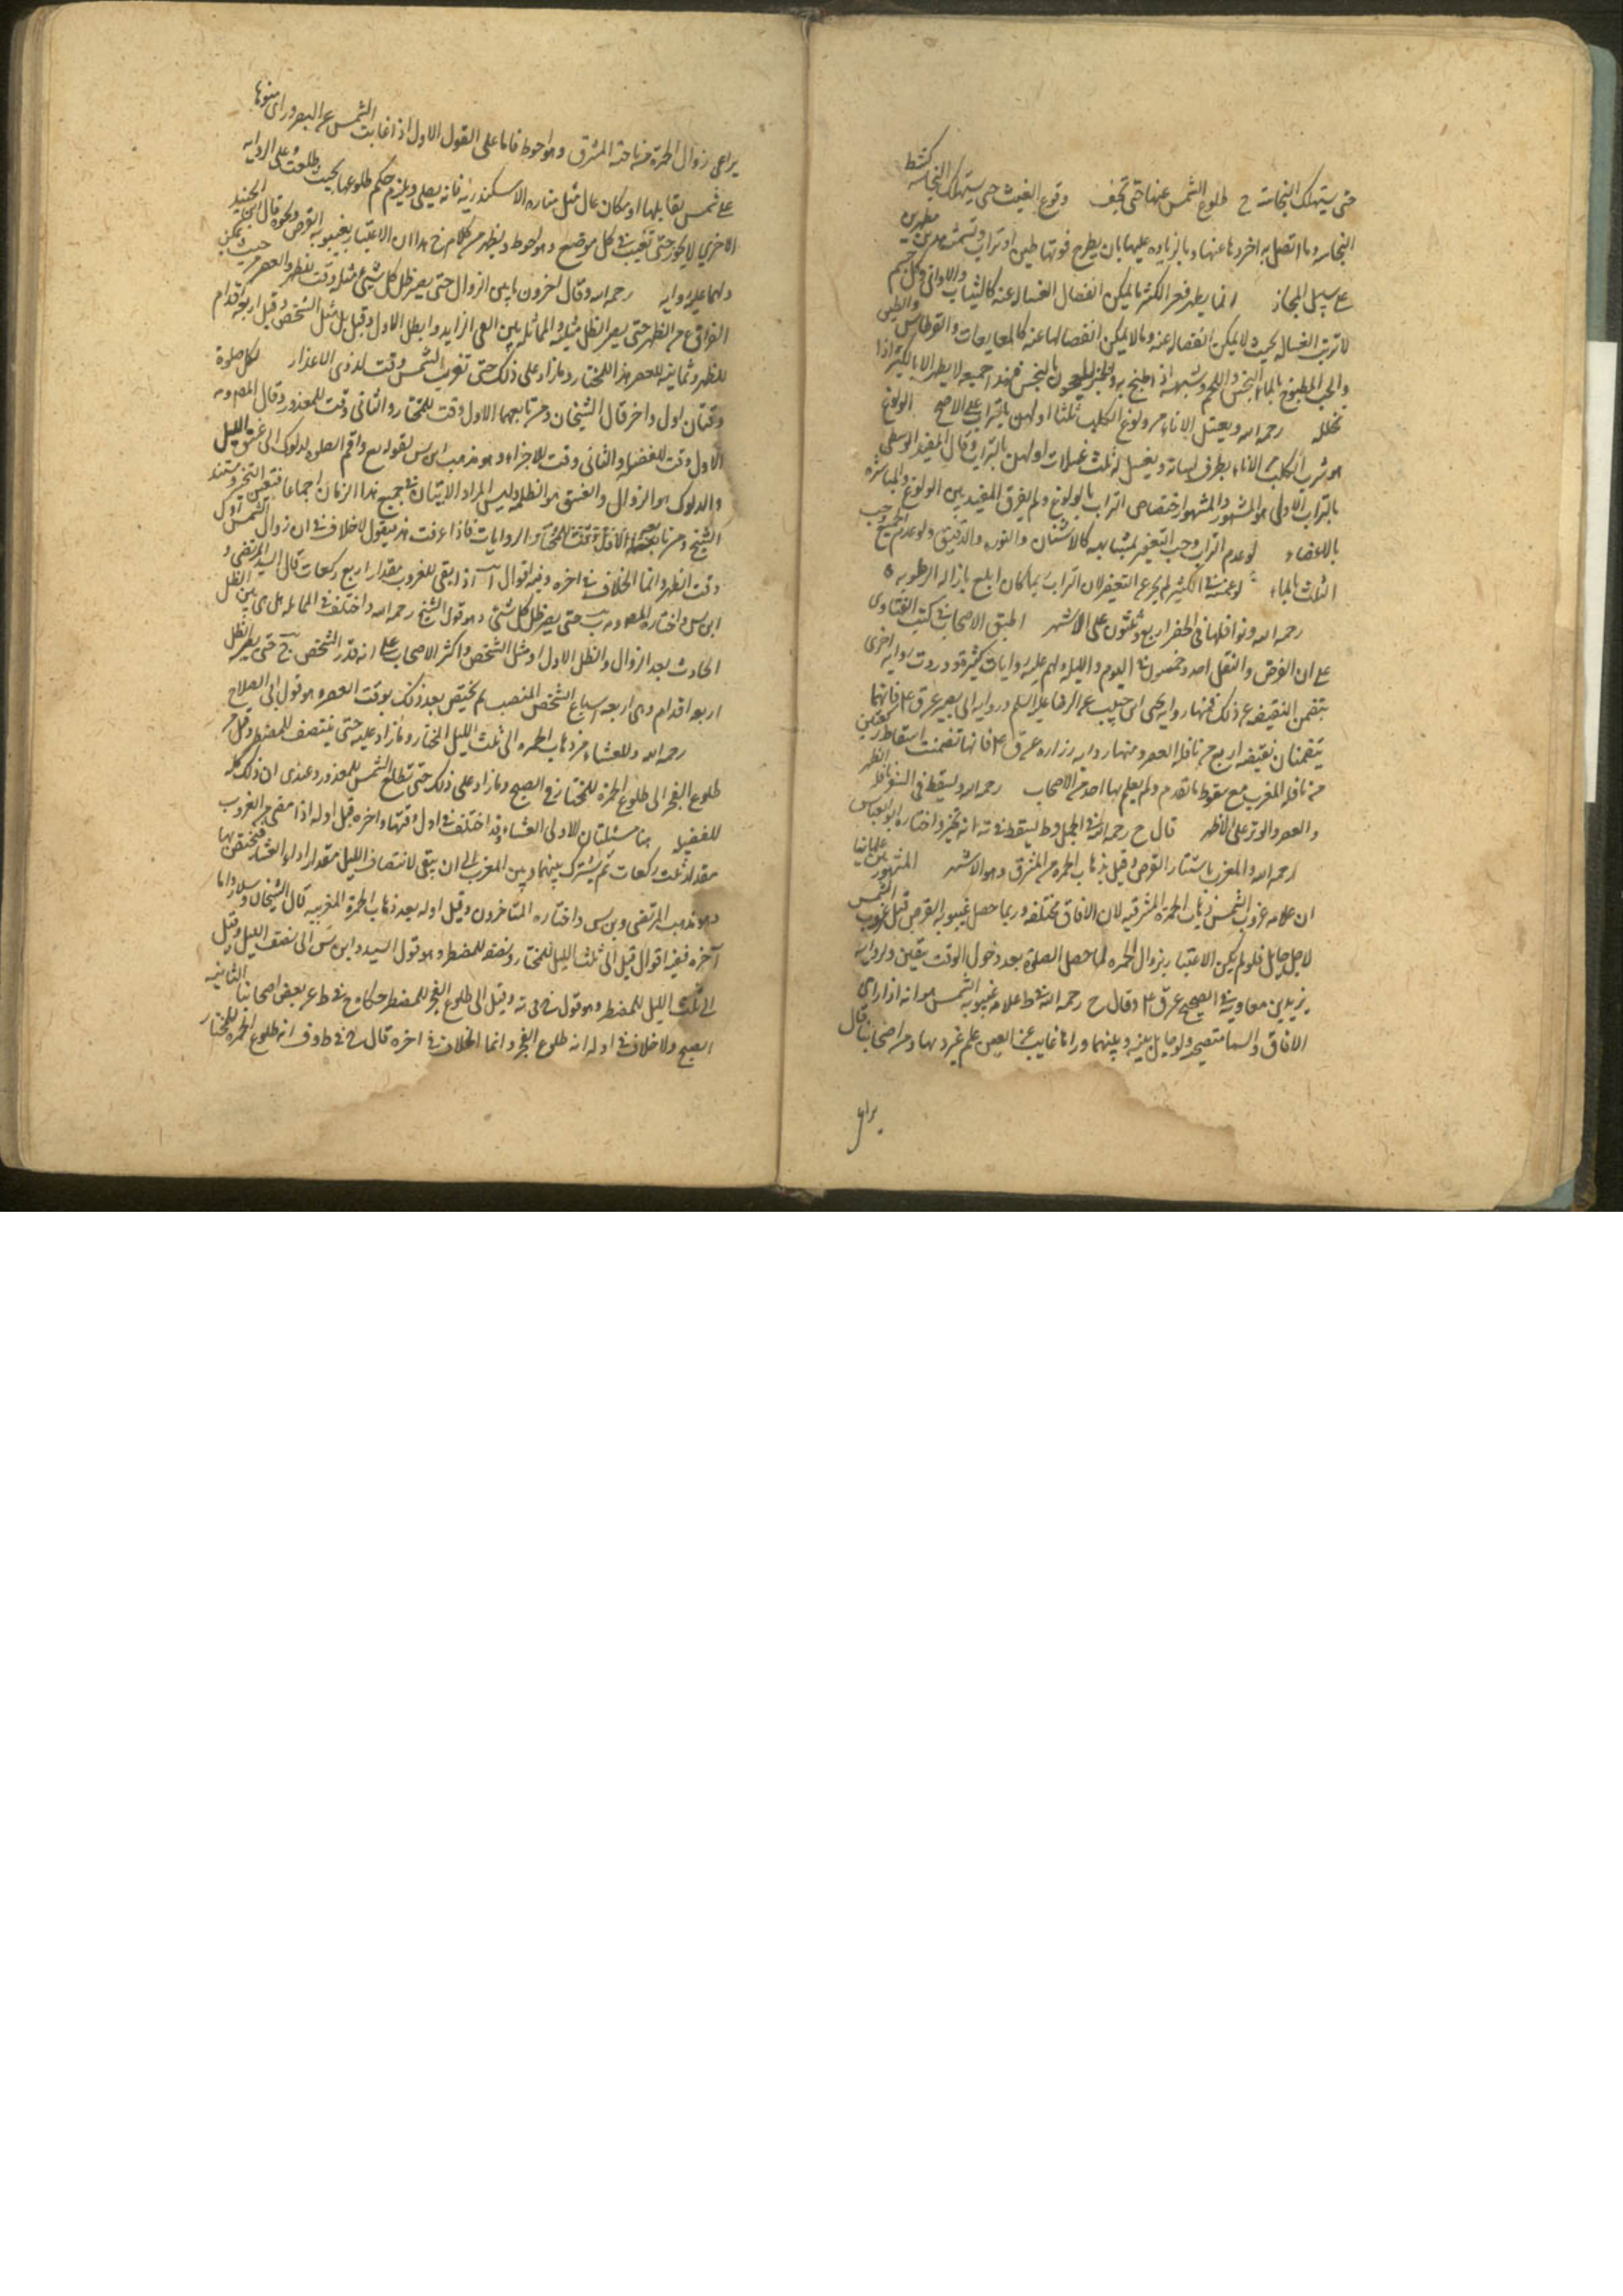 حتى يستهلك النجاسة ح طلوع الشمس عنها حتى تجف وقوع الغيث حتى يستهلك النجاسة كشط
النجاسة وما اتصل به اخر دها عنها وبالزيادة عليها بان يطرح فوقها طين او تراب وتسمية مطهرين
على سبيل المجاز انما يطهر فعر الكثير ما يمكن انفصال الغسالة عنه كالثياب والاواني وكل جسم
لا ترب الغسالة بحيث لا يمكن انفصاله عنه وما لا يمكن انفصالها عنه كالمعايعات والقرطاس والطين
والحب المطبوخ بالماء النجس واللحم وشبهه اذا طبخ به والخبز المعجون بالنجس فهذا جميعه لا يطهر الا بالكثير اذا
تخلله رحمه الله ويغسل الاناء من ولوغ الكلب ثلثا اولهن بالتراب على الاصح الولوغ
هو شرب الكلب من الاناء بطرف لسانه ويغسل له ثلث غسلات اولهن بالتراب وقال المفيد الوسطى
بالتراب الاولى هو المشهور والمشهور اختصاص التراب بالولوغ ولم يفرق المفيد بين الولوغ والمباشرة
بالاعضاء لو عدم التراب وجب التعفير بمشابهه كالاشنان والنورة والدقيق ولو عدم الجميع وجب
الثلث بالماء لو غمسه في الكثير لم يجز عن التعفير لان التراب بما كان ابلغ بازالة الرطوبة
رحمه الله ونوافلها في الحضر اربع وثلثون على الاشهر اطبق الاصحاب في كتب الفتاوى
على ان الفرض والنفل احد وخمسون في اليوم والليلة ولهم عليه روايات كثيرة ووردت رواية اخرى
بتضمن النقيصة عن ذلك فمنها رواية يحيى ابن حبيب عن الرضا عليه السلم ورواية ابي بصير عن ق ع فانهما
يتضمنان نقيصة اربع من نافلة العصر ومنها رواية زرارة عن ق ع فانها تضمنت اسقاط ركعتين
من نافلة المغرب مع سقوط ما تقدم ولم يعلم بها احد من الاصحاب رحمه الله ويسقط في السفر نوافل الظهر
والعصر والوتر على الاظهر قال ح رحمه الله في الجمل وط يسقط في ية انه يجوز واختاره ابو العباس
رحمه الله والمغرب باستتار القرص وقيل بذهاب الحمرة من المشرق وهو الاشهر المشهور بين علمائنا
ان علامة غروب الشمس ذهاب الحمرة المشرقية لان الافاق مختلفة وربما حصل غيبوبة القرص قبل غروب الشمس
لاجل حايل فلو لم يكن الاعتبار بزوال الحمرة لما حصل الصلوة بعد دخول الوقت بيقين ولرواية
يزيد بن معاوية في الصحيح عن ق ع وقال ح رحمه الله في ط علامة غيبوبة الشمس هو انه اذا راى
الافاق والسما متضحية ولو حايل بينه وبينهما وراها غايبت عن العين علم غروبها ومن اصحابنا قال
يراعى

يراعى زوال الحمرة من ناحية المشرق وهو احوط فاما على القول الاول اذا غابت الشمس عن البصر وراى ضوءها
على شمس يقابلها او مكان عال مثل منارة الاسكندرية فانه يصلى ويلزم حكم طلوعها بحيث طلعت وعلى الرواية
الاخرى لا يجوز حتى تغيب في كل موضع وهو احوط ويظهر من كلام الشيخ هذا ان الاعتبار بغيبوبة القرص ونحوه قال ابن الجنيد
ولها عليه رواية رحمه الله وقال اخرون ما بين الزوال حتى يصير ظل كل شيئ مثله وقت للظهر والعصر من حيث يمكن
الفراغ من الظهر حتى يصير الظل مثليه والمماثلة بين الفي الزايد والظل الاول وقيل بل مثل الشخص وقيل اربعة اقدام
للظهر وثمانية للعصر هذا للمختار وما زاد على ذلك حتى تغرب الشمس وقت لذوى الاعذار لكل صلوة
وقتان اول واخر قال الشيخان ومن تابعهما الاول وقت للمختار والثاني وقت للمعذور وقال المص
الاول وقت للفضيلة والثاني وقت للاجزاء وهو مذهب ابن س لقوله تع واقم الصلوة لدلوك الى غسق الليل
والدلوك هو الزوال والغسق هو الظلمة وليس المراد الاتيان في جميع هذا الزمان اجماعا فتعين التخير ومستند
الشيخ ومن تابعه الروايات فاذا عرفت هذا يقول لا خلاف في ان زوال الشمس اول
وقت الظهر وانما الخلاف في اخره وفيه اقوال آ اذا بقى للغروب مقدار اربع ركعات قال السيد المرتضى و
ابن س واختاره المص ب حتى يصير ظل كل شئ وهو قول الشيخ رحمه الله واختلف في المماثلة هل هي بين الظل
الحادث بعد الزوال والظل الاول او مثل الشخص واكثر الاصحاب على انه قدر الشخص ج حتى يصير الظل
اربعة اقدام وهي اربعة اسباع الشخص المنتصب ثم يختص بعد ذلك بوقت العصر وهو قول ابى الصلاح
رحمه الله وللعشاء من ذهاب الحمرة الى ثلث الليل للمختار وما زاد عليه حتى ينتصف للمضطر وقيل
طلوع الفجر الى طلوع الحمرة للمختار في الصبح وما زاد على ذلك حتى تطلع الشمس للمعذور وعندى ان ذلك كله
للفضيلة هنا مسئلتان الاولى العشاء وقد اختلف في اول وقتها واخره قيل اوله اذا مضى من الغروب
مقدار ثلث ركعات ثم يشترك بينهما وبين المغرب الى ان يبقى لانتصاف الليل مقدار اداء العشاء فيختص بها
وهو مذهب المرتضى وبن س واختاره المتاخرون وقيل اوله بعد ذهاب الحمرة المغربية قال الشيخان وسلار واما
آخره ففيه اقوال قيل الى ثلث الليل للمختار ونصفه للمضطر وهو قول السيد وابن س الى نصف الليل وقيل
الى ثلث الليل للمضطر وهو قول في ية وقيل الى طلوع الفجر للمضطر حكاه ح في ط عن بعض اصحابنا الثانية
الصبح ولا خلاف في اوله انه طلوع الفجر وانما الخلاف في اخره قال في ط وف انه طلوع الحمرة للمختار